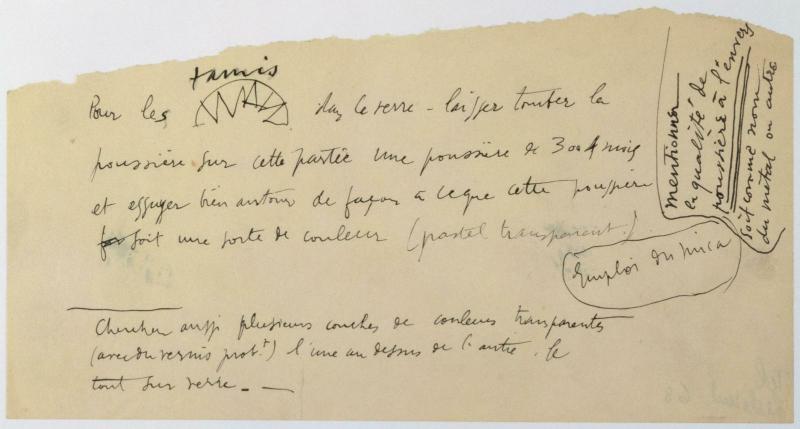 tamis
Pour les dans le verre – laisser tomber la
poussière sur cette partie une poussière de 3 ou 4 mois
et essuyer bien autour de façon à ce que cette poussière
soit une sorte de couleur (pastel transparent)
Emploi du mica
mentionner
la qualité de
poussière à l'envers
soit comme nom
du métal ou autre
Chercher aussi plusieurs couches de couleurs transparentes
(avec du vernis prob.t) l'une au dessus de l'autre. le
tout sur verre. –